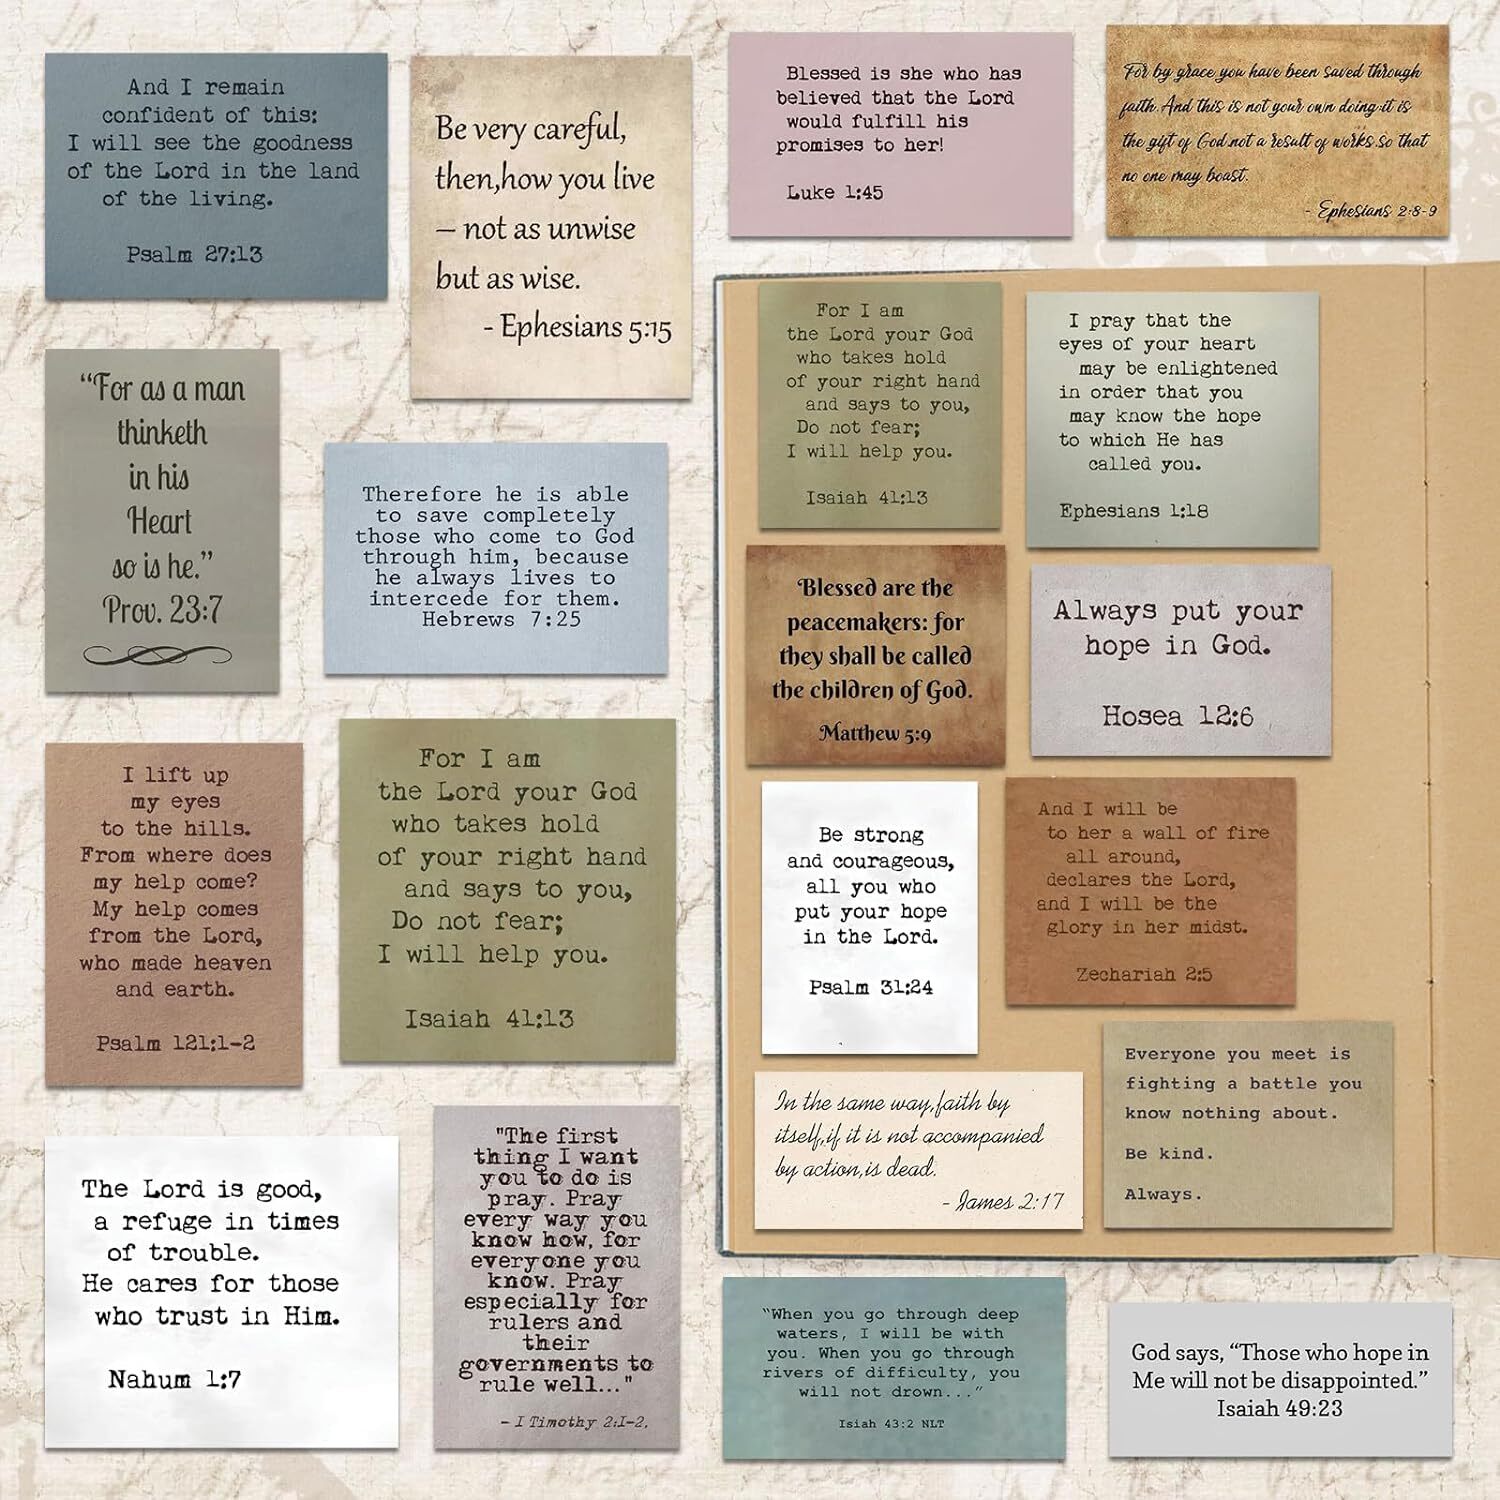 And I remain
confident of this:
I will see the goodness
of the Lord in the land
of the living.
Psalm 27:13
Be very careful,
then,how you live
– not as unwise
but as wise.
- Ephesians 5:15
Blessed is she who has
believed that the Lord
would fulfill his
promises to her!
Luke 1:45
For by grace you have been saved through
faith.And this is not your own doing:it is
the gift of God.not a result of works.so that
no one may boast.
- Ephesians 2:8-9
“For as a man
thinketh
in his
Heart
so is he.”
Prov. 23:7
Therefore he is able
to save completely
those who come to God
through him, because
he always lives to
intercede for them.
Hebrews 7:25
For I am
the Lord your God
who takes hold
of your right hand
and says to you,
Do not fear;
I will help you.
Isaiah 41:13
I pray that the
eyes of your heart
may be enlightened
in order that you
may know the hope
to which He has
called you.
Ephesians 1:18
Blessed are the
peacemakers: for
they shall be called
the children of God.
Matthew 5:9
Always put your
hope in God.
Hosea 12:6
I lift up
my eyes
to the hills.
From where does
my help come?
My help comes
from the Lord,
who made heaven
and earth.
Psalm 121:1-2
For I am
the Lord your God
who takes hold
of your right hand
and says to you,
Do not fear;
I will help you.
Isaiah 41:13
Be strong
and courageous,
all you who
put your hope
in the Lord.
Psalm 31:24
And I will be
to her a wall of fire
all around,
declares the Lord,
and I will be the
glory in her midst.
Zechariah 2:5
The Lord is good,
a refuge in times
of trouble.
He cares for those
who trust in Him.
Nahum 1:7
"The first
thing I want
you to do is
pray. Pray
every way you
know how, for
everyone you
know. Pray
especially for
rulers and
their
governments to
rule well..."
- I Timothy 2:1-2,
In the same way,faith by
itself,if it is not accompanied
by action,is dead.
- James 2:17
Everyone you meet is
fighting a battle you
know nothing about.
Be kind.
Always.
“When you go through deep
waters, I will be with
you. When you go through
rivers of difficulty, you
will not drown...”
Isiah 43:2 NLT
God says, “Those who hope in
Me will not be disappointed.”
Isaiah 49:23